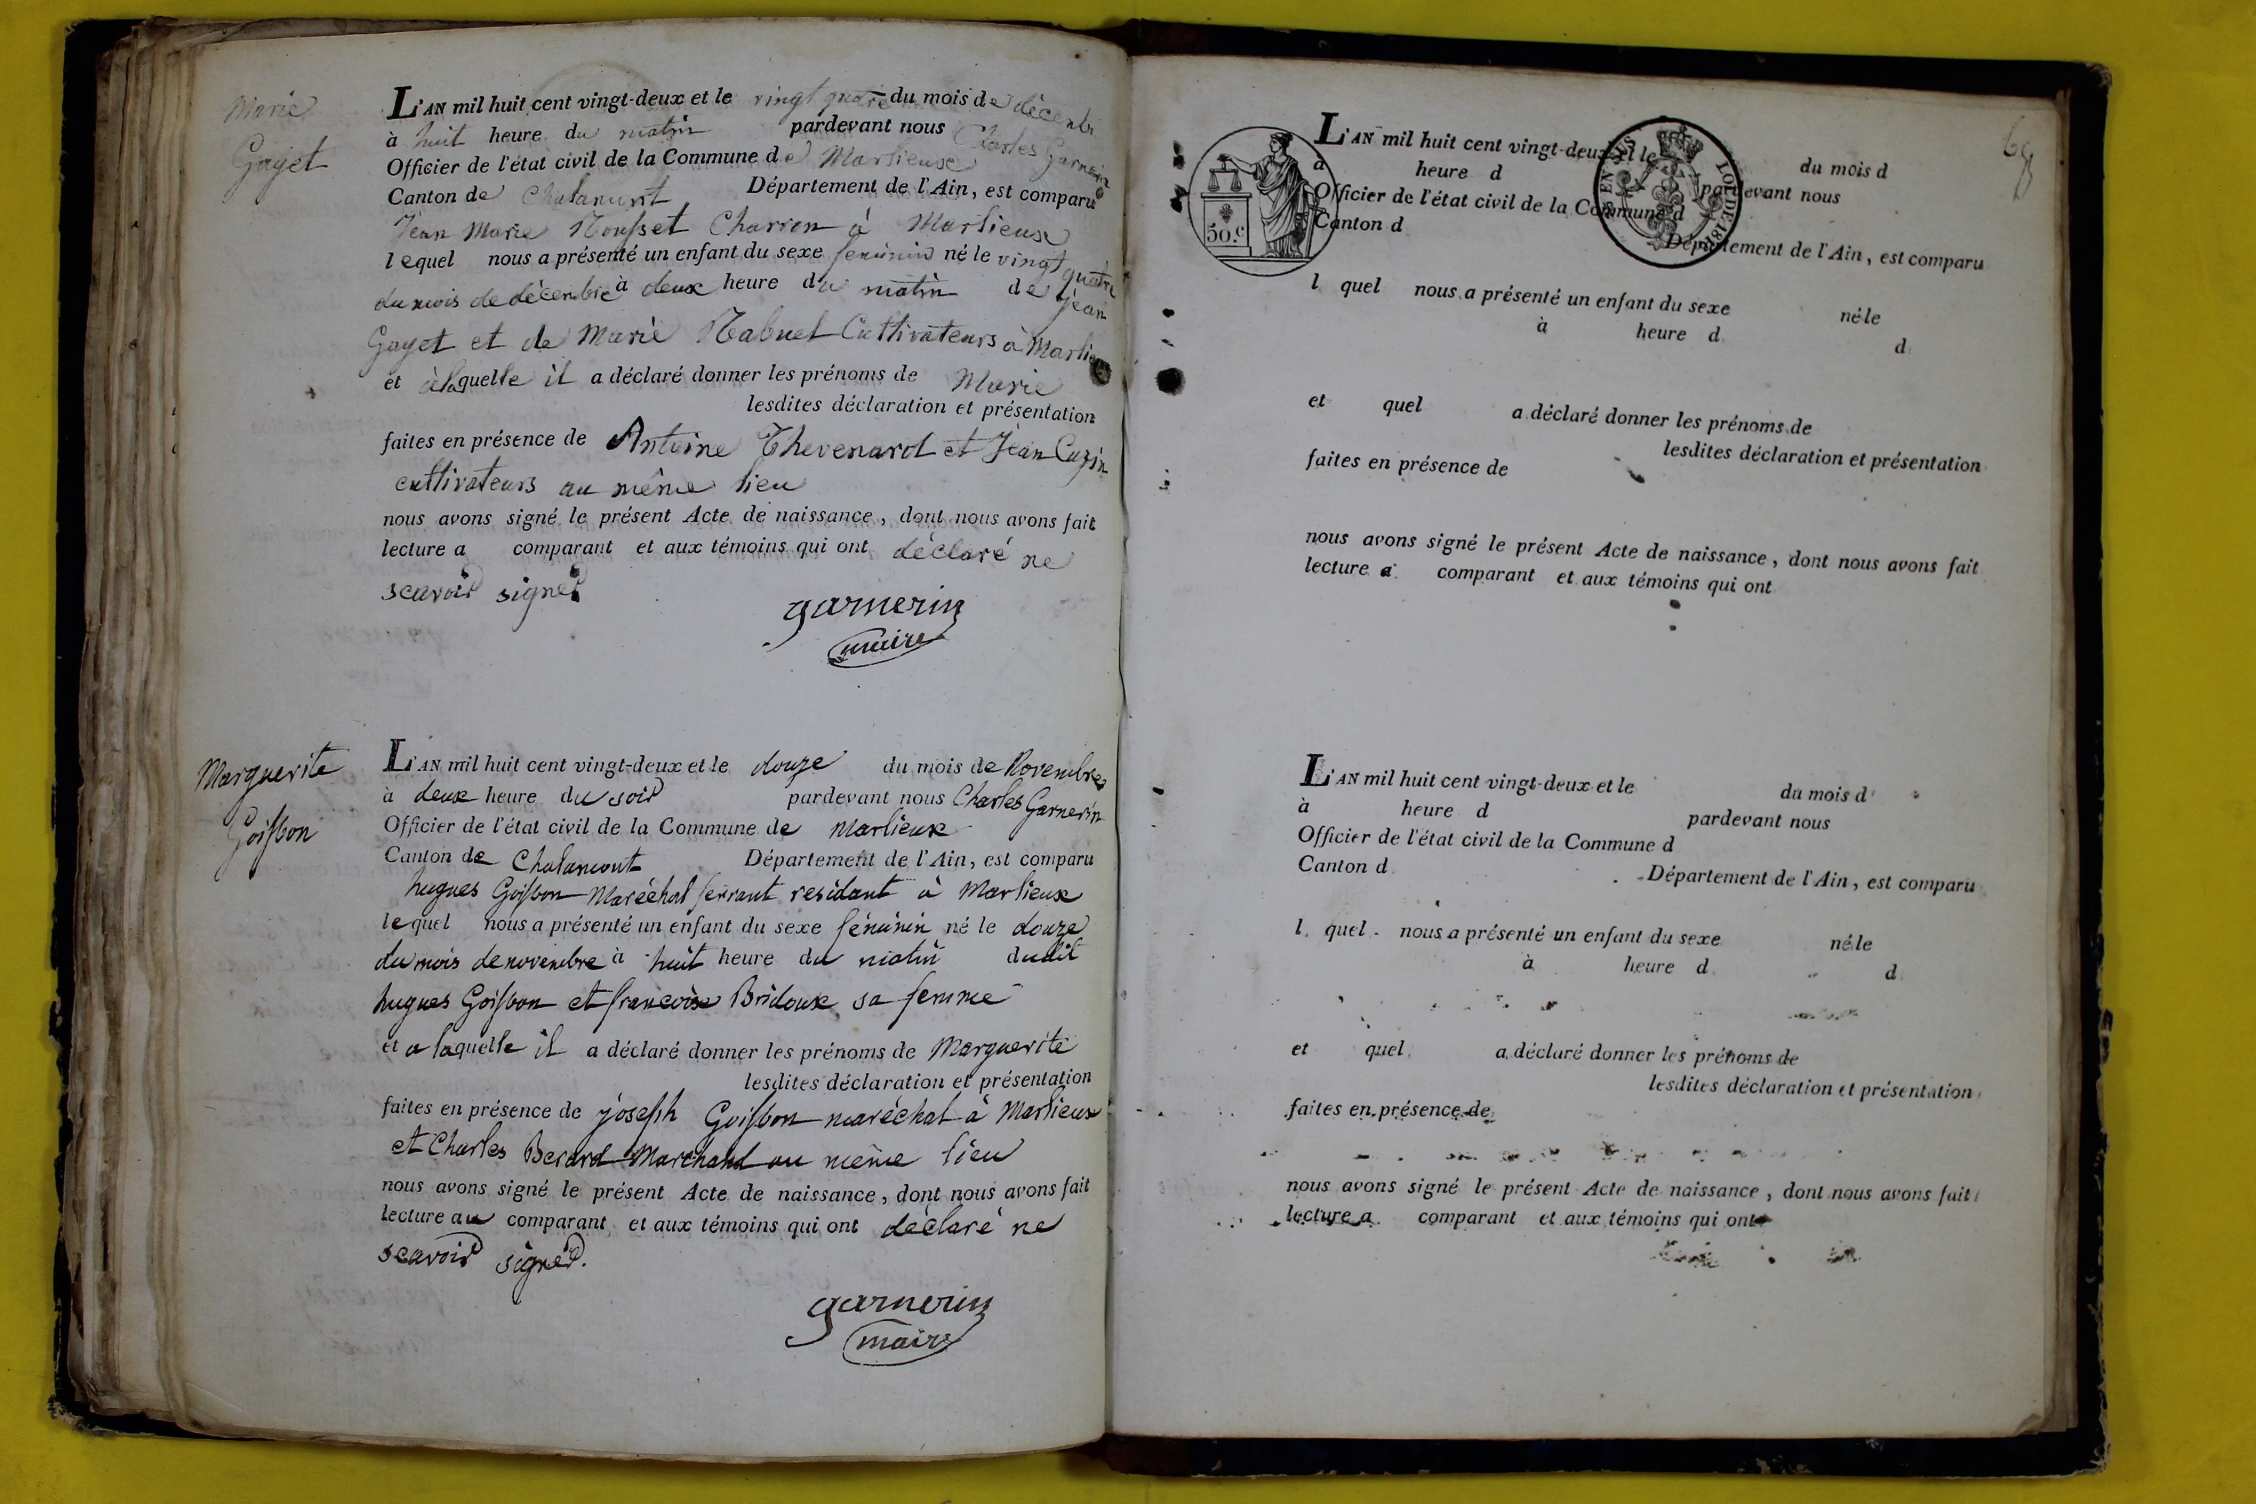 Marie
Gayet
L'AN mil huit cent vingt-deux et le vingt quatre du mois de décembre
à huit heure du matin pardevant nous Charles Garnerin
Officier de l'état civil de la Commune de Marlieux
Canton de Chalamont Département de l'Ain, est comparu
Jean Marie Rousset Charron à Marlieux
lequel nous a présenté un enfant du sexe feminin né le vingt quatre
du mois de décembre à deux heure du matin de Jean
Gayet et de Marie Rabuel Cultivateurs à Marlieux
et à laquelle il a déclaré donner les prénoms de Marie
lesdites déclaration et présentation
faites en présence de Antoine Thevenard et Jean Cuzin
cultivateurs au même lieu
nous avons signé le présent Acte de naissance, dont nous avons fait
lecture a comparant et aux témoins qui ont déclaré ne
scavoir signer
garnerin
maire
Marguerite
Goisson
L'AN mil huit cent vingt-deux et le douze du mois de Novembre
à deux heure du soir pardevant nous Charles Garnerin
Officier de l'état civil de la Commune de Marlieux
Canton de Chalamont Département de l'Ain, est comparu
hugues Goisson Maréchal ferrant residant à Marlieux
lequel nous a présenté un enfant du sexe féminin né le douze
du mois de novembre à huit heure du matin dudit
hugues Goisson et francoise Bridoux sa femme
et a laquelle il a déclaré donner les prénoms de Marguerite
lesdites déclaration et présentation
faites en présence de joseph Goisson maréchal à Marlieux
et Charles Berard Marchand au même lieu
nous avons signé le présent Acte de naissance, dont nous avons fait
lecture au comparant et aux témoins qui ont déclaré ne
scavoir signer.
garnerin
maire
50.c
L'AN mil huit cent vingt-deux et le du mois d
à heure d pardevant nous
Officier de l'état civil de la Commune d
Canton d Département de l'Ain, est comparu
l quel nous a présenté un enfant du sexe né le
à heure d d
et quel a déclaré donner les prénoms de
lesdites déclaration et présentation
faites en présence de
nous avons signé le présent Acte de naissance, dont nous avons fait
lecture a comparant et aux témoins qui ont
L'AN mil huit cent vingt-deux et le du mois d
à heure d pardevant nous
Officier de l'état civil de la Commune d
Canton d Département de l'Ain, est comparu
l quel nous a présenté un enfant du sexe né le
à heure d d
et quel a déclaré donner les prénoms de
lesdites déclaration et présentation
faites en présence de
nous avons signé le présent Acte de naissance, dont nous avons fait
lecture a comparant et aux témoins qui ont